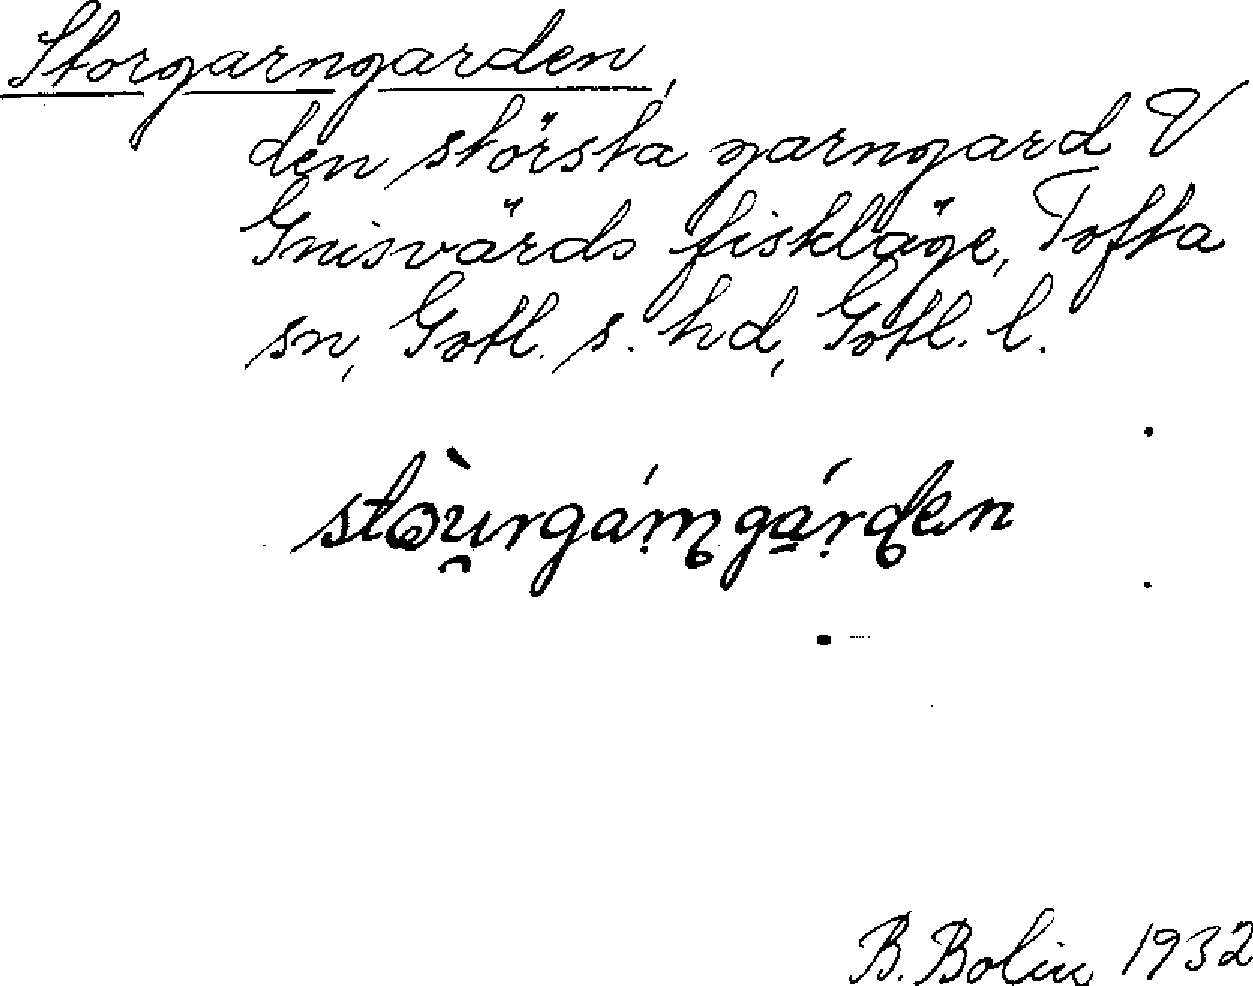 Storgarngarden,
den största garngard V
Gnisvärds fiskläge, Tofta
sn, Gotl. s. hd, Gotl. l.
B. Bolin 1932